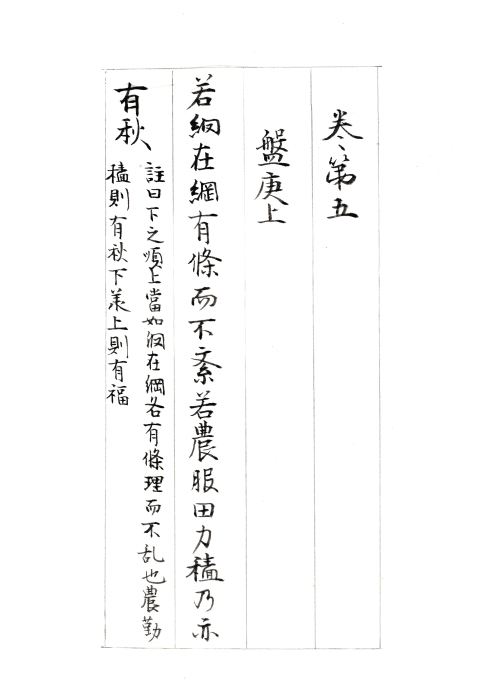 卷第五
盤庚上
若䋄在綱有條而不紊若農服田力穡乃亦
有秋
註曰下之順上當如䋄在綱各有條理而不乱也農勤
穡則有秋下羕上則有福